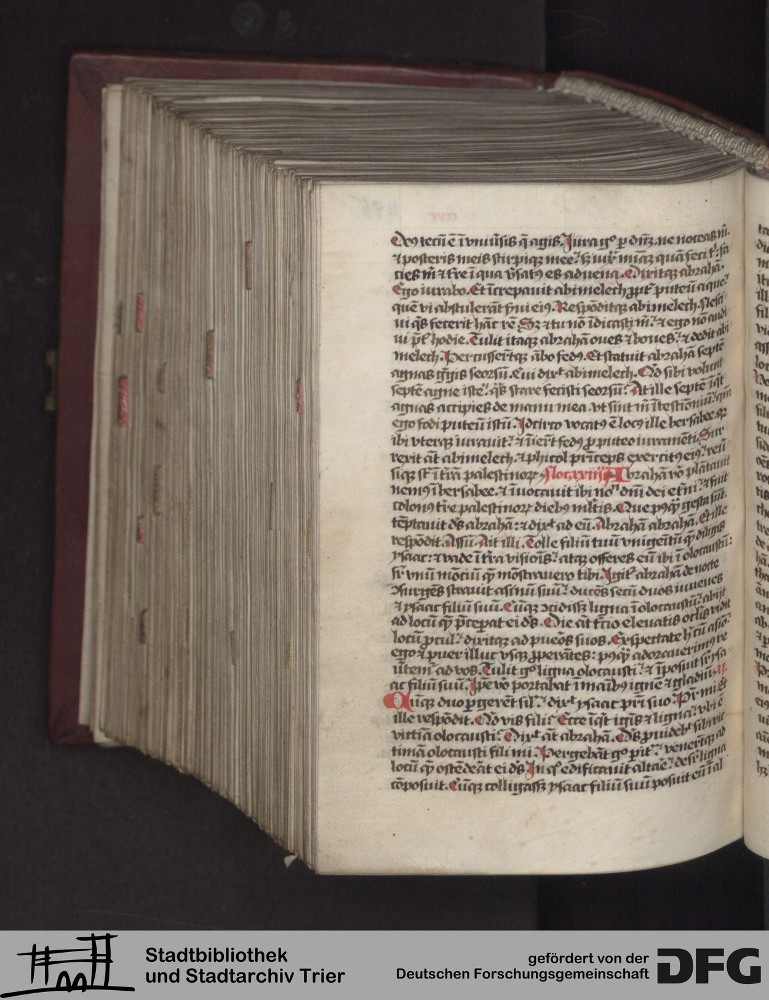 Deꝰ tecū ē ī vniūsis q̄ agis. Iura gͦ ꝑ dnꝫ. ne noceas m̄.
⁊ posteris meis stirpiqꝫ mee. sꝫ iux̄ mīaꝫ quā feci t̄. fa
cies m̄ ⁊ t̄re ī qua v̄satꝰ es aduena. Dixitqꝫ abrahā.
Ego iurabo. Et īcrepauit abimelech ꝓpt̄ puteū aque.
quē vi abstulerāt ẜui eiꝰ. Respōditqꝫ abimelech. Nesci
ui q̄s fecerit hāc rē. Sꝫ ⁊ tu nō īdicasti m̄. ⁊ ego nō audi
ui p̄t̄ hodie. Tulit itaqꝫ abrahā oues ⁊ boues. ⁊ dedit abi
melech. Percusserūtqꝫ ābo fedꝰ. Et statuit abrahā septē
agnas gͤgis seorsū. Cui dixͭ abimelech. Qͦd sibi volunt
septē agne iste. q̄s stare fecisti seorsū. At ille septē īqͭ
agnas accipies de manu mea. vt sint m̄ ī testioniū. qm̄
ego fodi puteū istū. Idcirco vocatꝰ ē locꝰ ille bersabee. qꝫ
ibi vterqꝫ iurauit. ⁊ īiert̄ fedꝰ ꝓ puteo iuramēti. Sur
rexit āt abimelech. ⁊ phicol prīceps exercitꝰ eiꝰ. reūͥ
siqꝫ st̄ ī t̄rā palestinoꝝ. Abrahā vͦ plātauit
nemꝰ ī bersabee. ⁊ īuocauit ibi noͫ dn̄i dei et̄ni. ⁊ fuit
colonꝰ t̄re palestinoꝝ diebꝰ ml̄tis. Que pꝰqͣꝫ gesta sūt.
tēptauit dͤs abrahā. ⁊ dixͭ ad eū. Abrahā abrahā. Et ille
respōdit. Assū. Ait illi. Tolle filiū tuū vnigenitū q̄ꝫ diligis
ysaac. ⁊ vade ī t̄rā visiōis. atqꝫ offeres eū ibi ī olocaustū.
sr̄ vnū mōtiū qͣꝫ mōstrauero tibi. Igit̄ abrahā de nocte
ↄsurgēs strauit asinū suū. ducēs secū duos iuuenes
⁊ ysaac filiū suū. Cūqꝫ ↄcidissꝫ ligna ī olocaustū. abijt
ad locū qͣꝫ p̄cepat ei dͤs. Die āt t̄cio eleuatis oclīs vidit
locū ꝓcul. dixitqꝫ ad pueōs suos. Expectate hͥ cū asīo.
ego ⁊ puer illuc vsqꝫ ꝓperātes. pꝰqͣꝫ adorauerimꝰ re
ūtemͬ ad vos. Tulit gͦ ligna olocausti. ⁊ īposuit sr̄ ysa
ac filiū suū. Ip̄e vͦ portabat ī manibꝰ igнē ⁊ gladiū.
Cūqꝫ duo ꝑgerēt sīl. dixͭ ysaac p̄ri suo. Pr̄ mi. Et
ille respōdit. Qͦd vis fili. Ecce īqͭ ignis ⁊ ligna. vbi ē
victīa olocausti. Dixͭ āt abrahā. Dͤs ꝓuidebͭ sibi vic
timā olocausti fili mi. Pergebāt gͦ pit̄. venerūtqꝫ ad
locū qͣꝫ ostēdeāt ei dͤs. In qͦ edificauit altaē. desr̄ ligna
cōposuit. Cūqꝫ colligassꝫ ysaac filiū suū posuit eū ī al
Stadtbibliothek
und Stadtarchiv Trier
gefördert von der
Deutschen Forschungsgemeinschaft
DFG